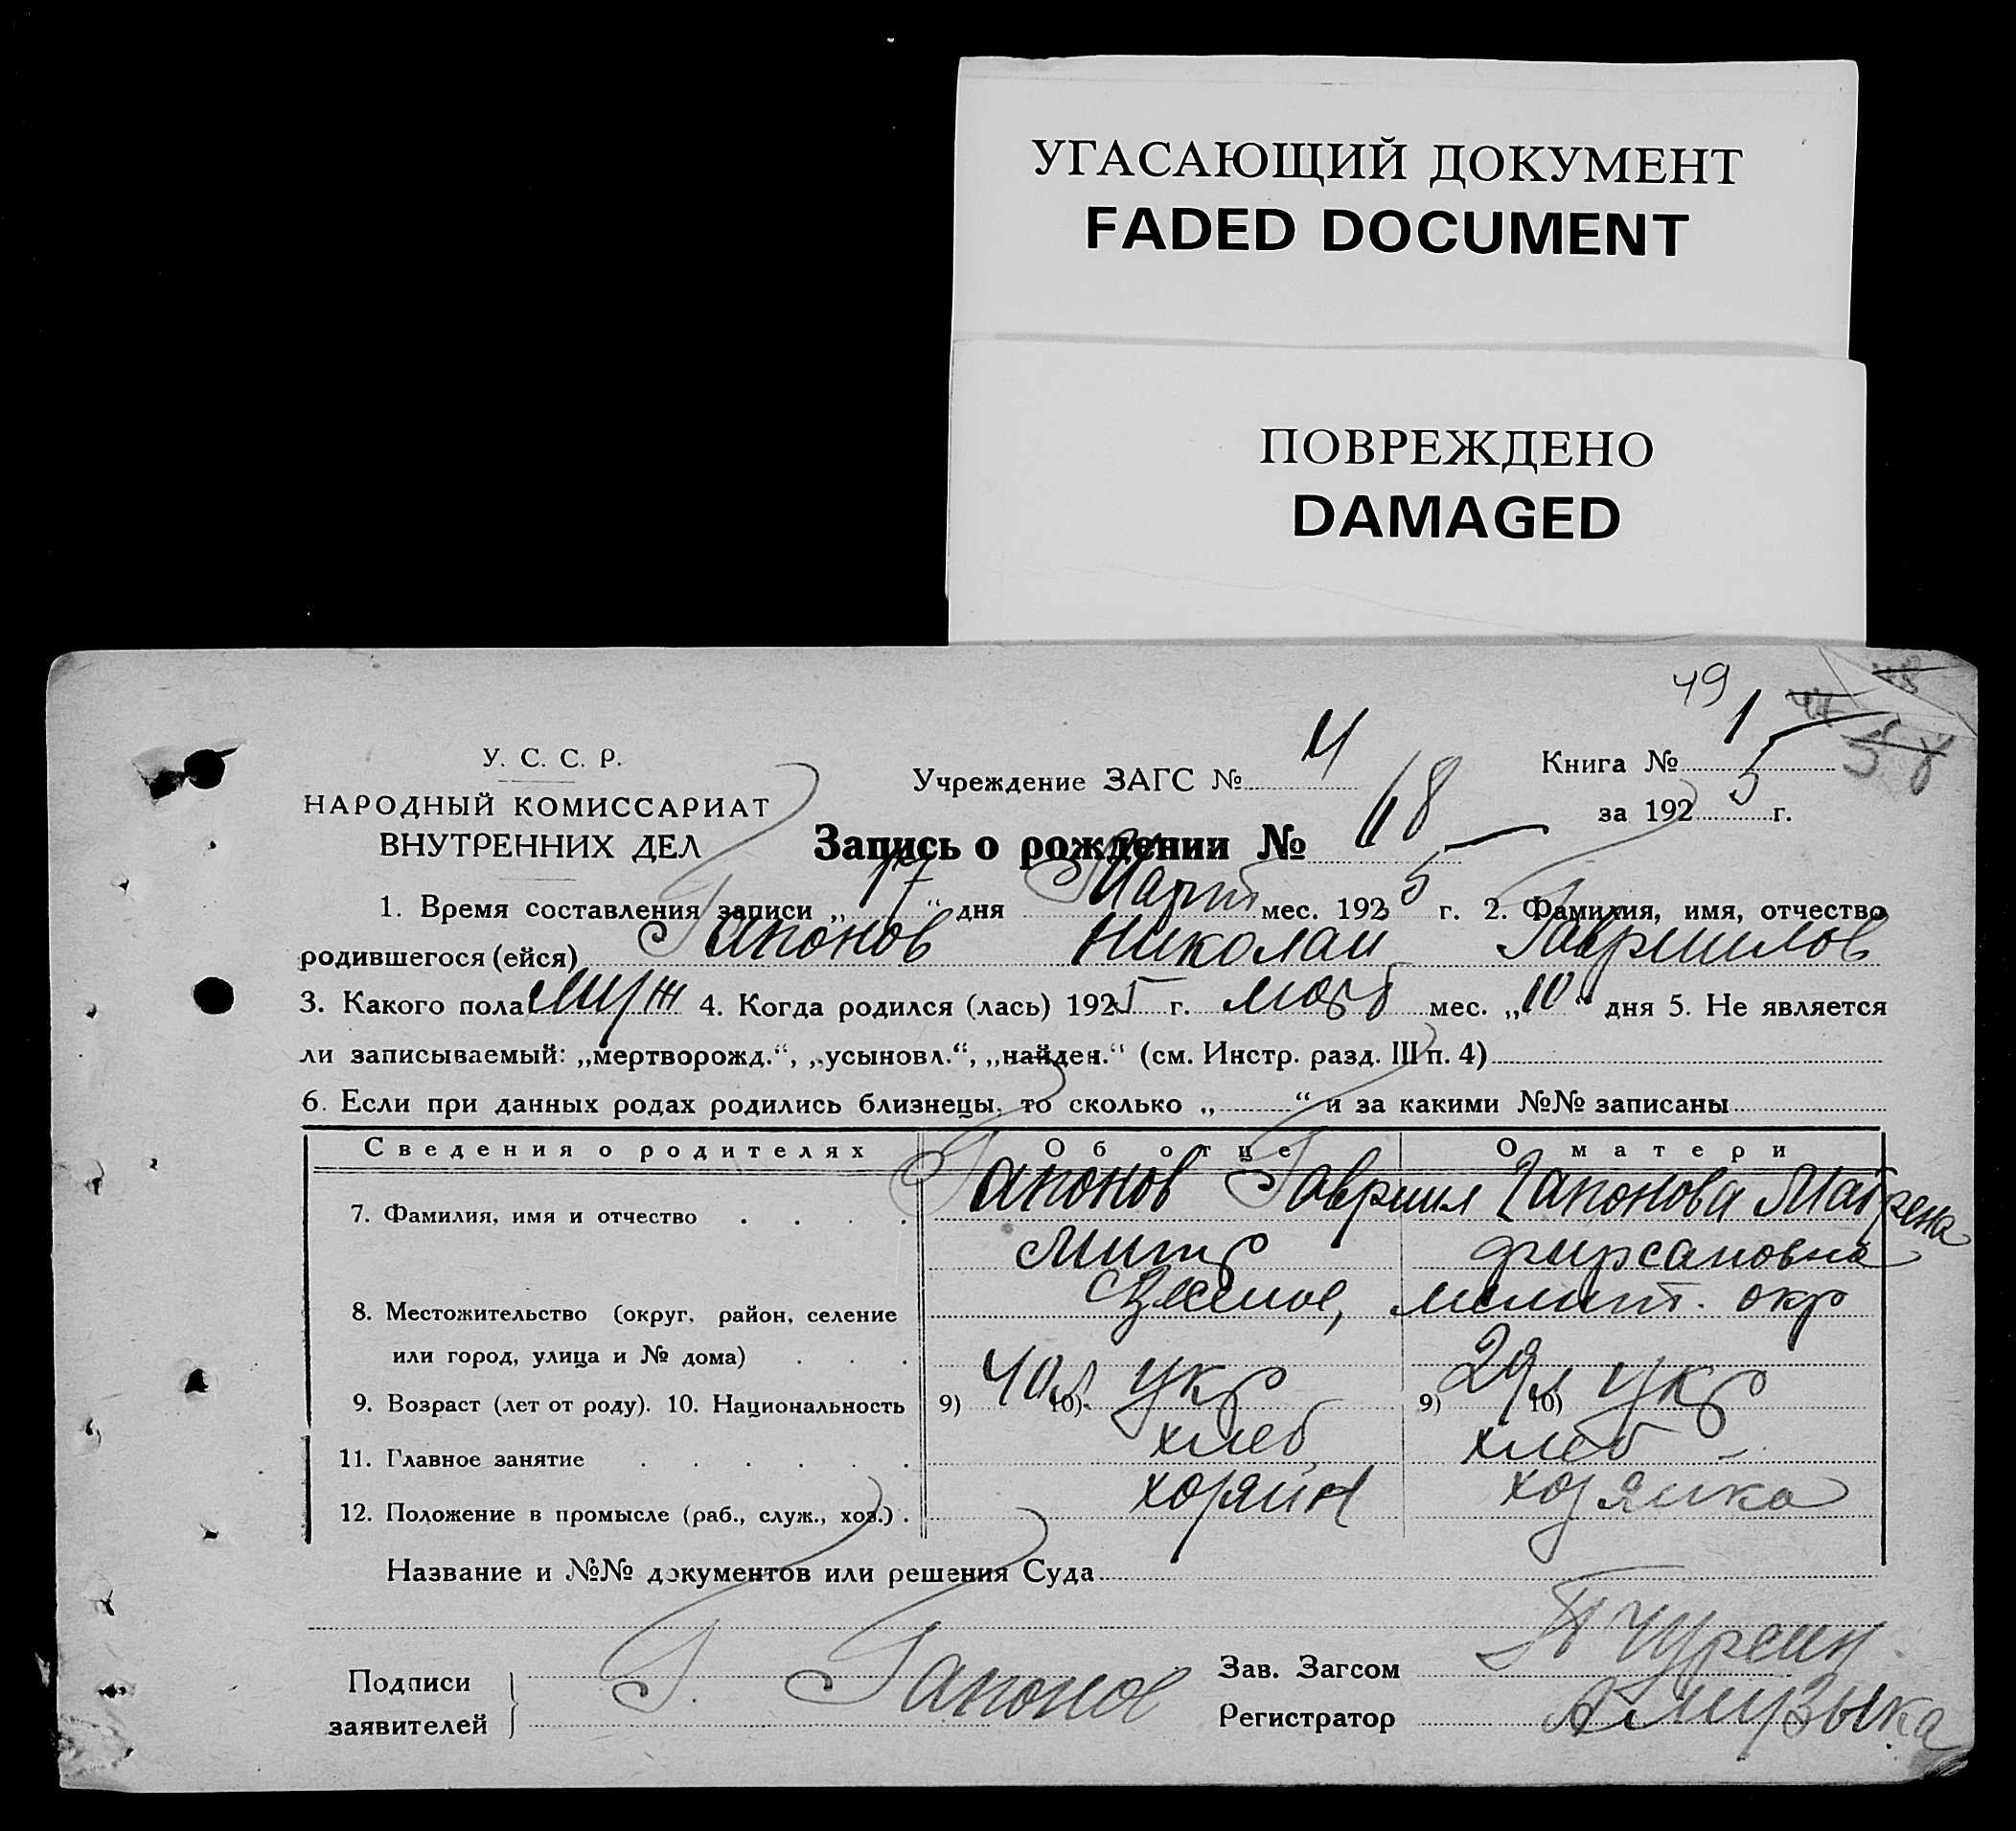 УГАСАЮЩИЙ ДОКУМЕНТ
FADED DOCUMENT
ПОВРЕЖДЕНО
DAMAGED
49
У. С. С. Р.
НАРОДНЫЙ КОМИССАРИАТ
ВНУТРЕННИХ ДЕЛ
Учреждение ЗАГС № 4
Книга № 1
58
за 1925 г.
Запись о рождении № 68
1. Время составления записи „17“ дня Март мес. 1925 г. 2. Фамилия, имя, отчество
родившегося (ейся) Гапонов Николай Гавриилов
3. Какого пола муж 4. Когда родился (лась) 1925 г. мес. „10“ дня 5. Не является
ли записываемый: „мертворожд.“, „усыновл.“, „найден.“ (см. Инстр. разд. III п. 4)
6. Если при данных родах родились близнецы, то сколько „ “ и за какими №№ записаны
Сведения о родителях Об отце О матери
7. Фамилия, имя и отчество Гапонов Гавриил Гапонова Матрена
Митр Фирсановна
8. Местожительство (округ, район, селение мелит. окр
или город, улица и № дома)
9. Возраст (лет от роду). 10. Национальность 9) 40 л 10) укр 9) 29 л 10) укр
11. Главное занятие хлеб хлеб
12. Положение в промысле (раб., служ., хоз.) хозяин хозяйка
Название и №№ документов или решения Суда
Подписи заявителей Г. Гапонов
Зав. Загсом Чурсин
Регистратор А Музыка